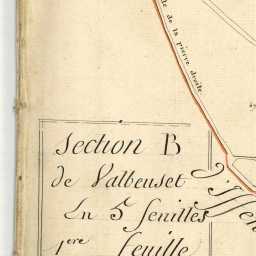 de la pierre droite
Section B
de Valbeuset
En 5 feuilles
1ere feuille